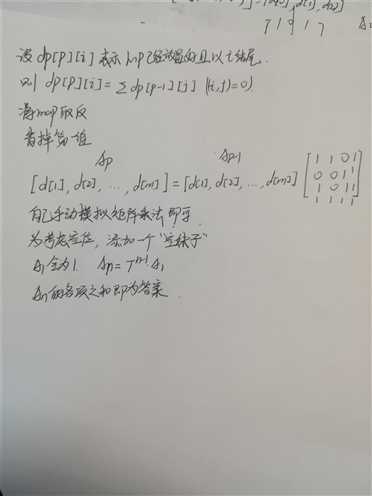 设 dp[p][i] 表示 1~p 已经放置好且以 i 结尾.
则 dp[p][i] = Σ dp[p-1][j] (H(i,j)=0)
将map取反
Ap Ap-1
[d[1], d[2], ..., d[m]] = [d[1], d[2], ..., d[m]] [1 1 0 1
0 0 1 1
1 0 1 1
1 1 1 1]
自己手动模拟矩阵乘法即可
为考虑空位, 添加一个"空珠子"
A1全为1. An = T^n-1 A1
An的各项之和即为答案.